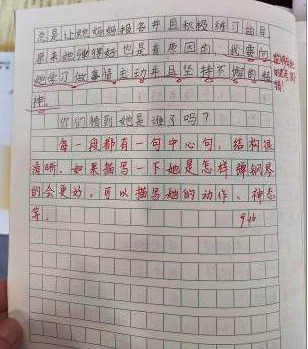 总是让她妈妈报名并且积极练习曲目
原来她弹得好也是有原因的。我要向
她学习做事情主动并且坚持不懈的精
神。
你们猜到她是谁了吗？
每一段都有一句中心句，结构很
清晰。如果描写一下她是怎样弹钢琴
的会更好，可以描写她的动作、神态
等。